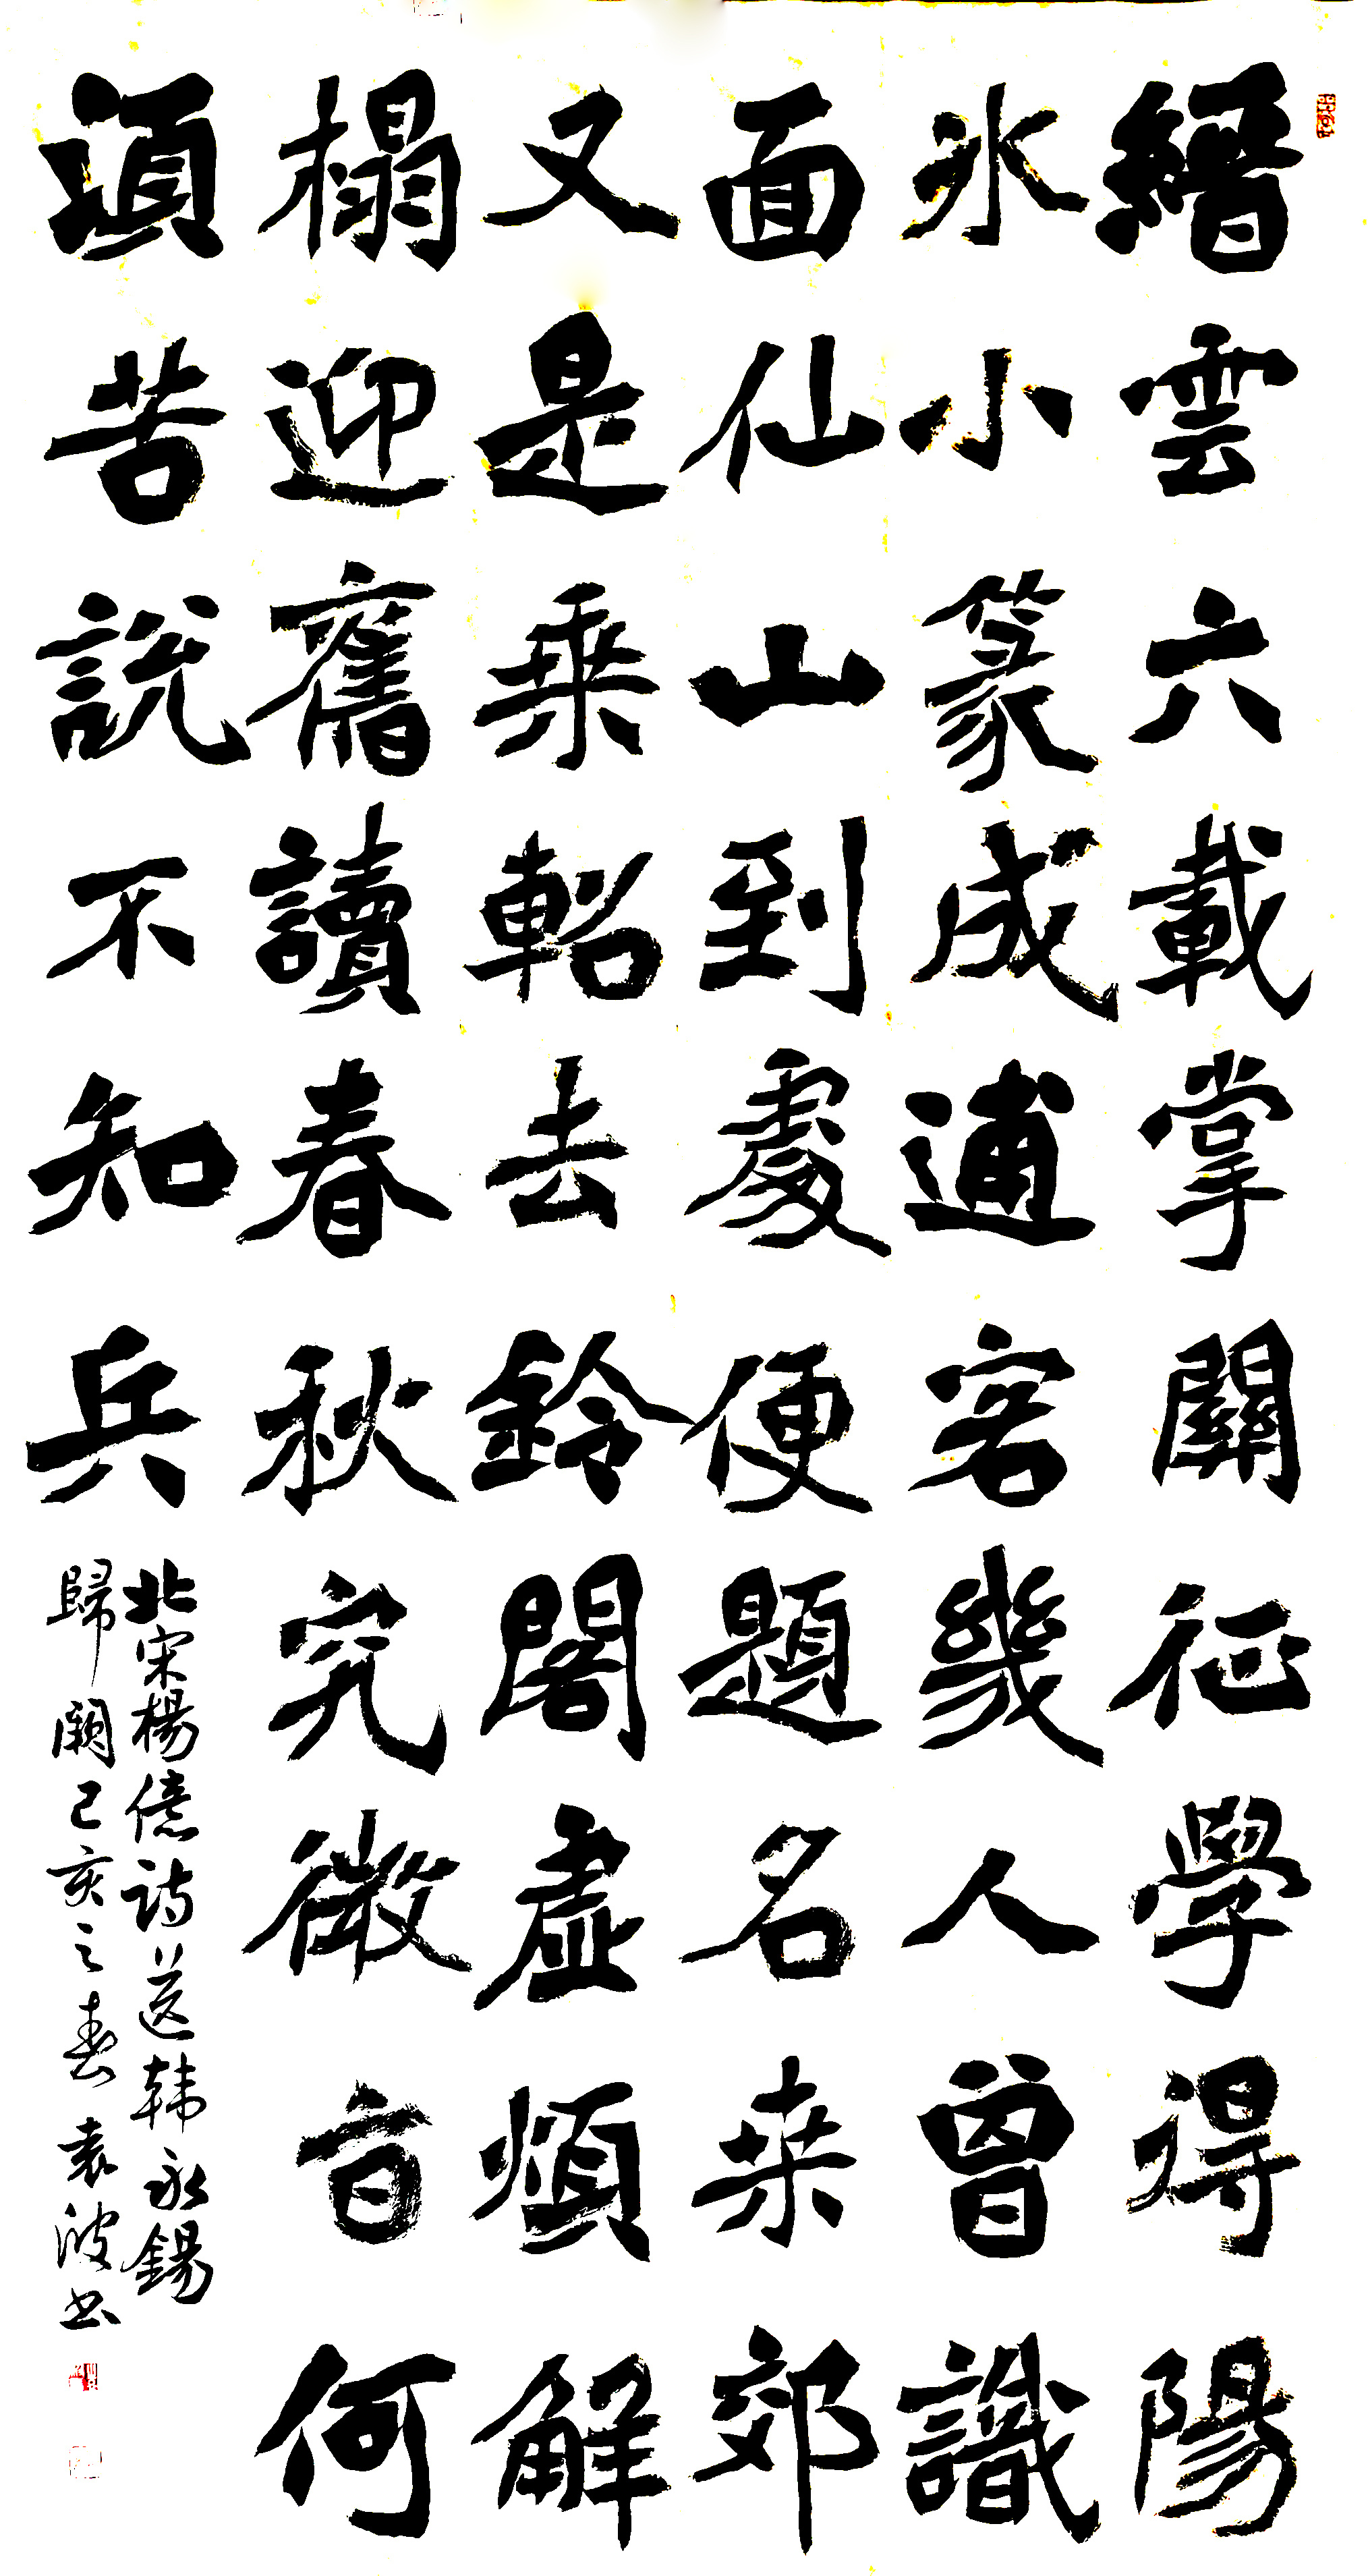 縉雲六載掌關征學得陽
氷小篆成逋客幾人曾識
面仙山到處便題名来郊
又是乗軺去鈴閣虛煩解
榻迎舊讀春秋究微旨何
須苦說不知兵
北宋楊億詩送韩永錫
歸闕己亥之春袁波书